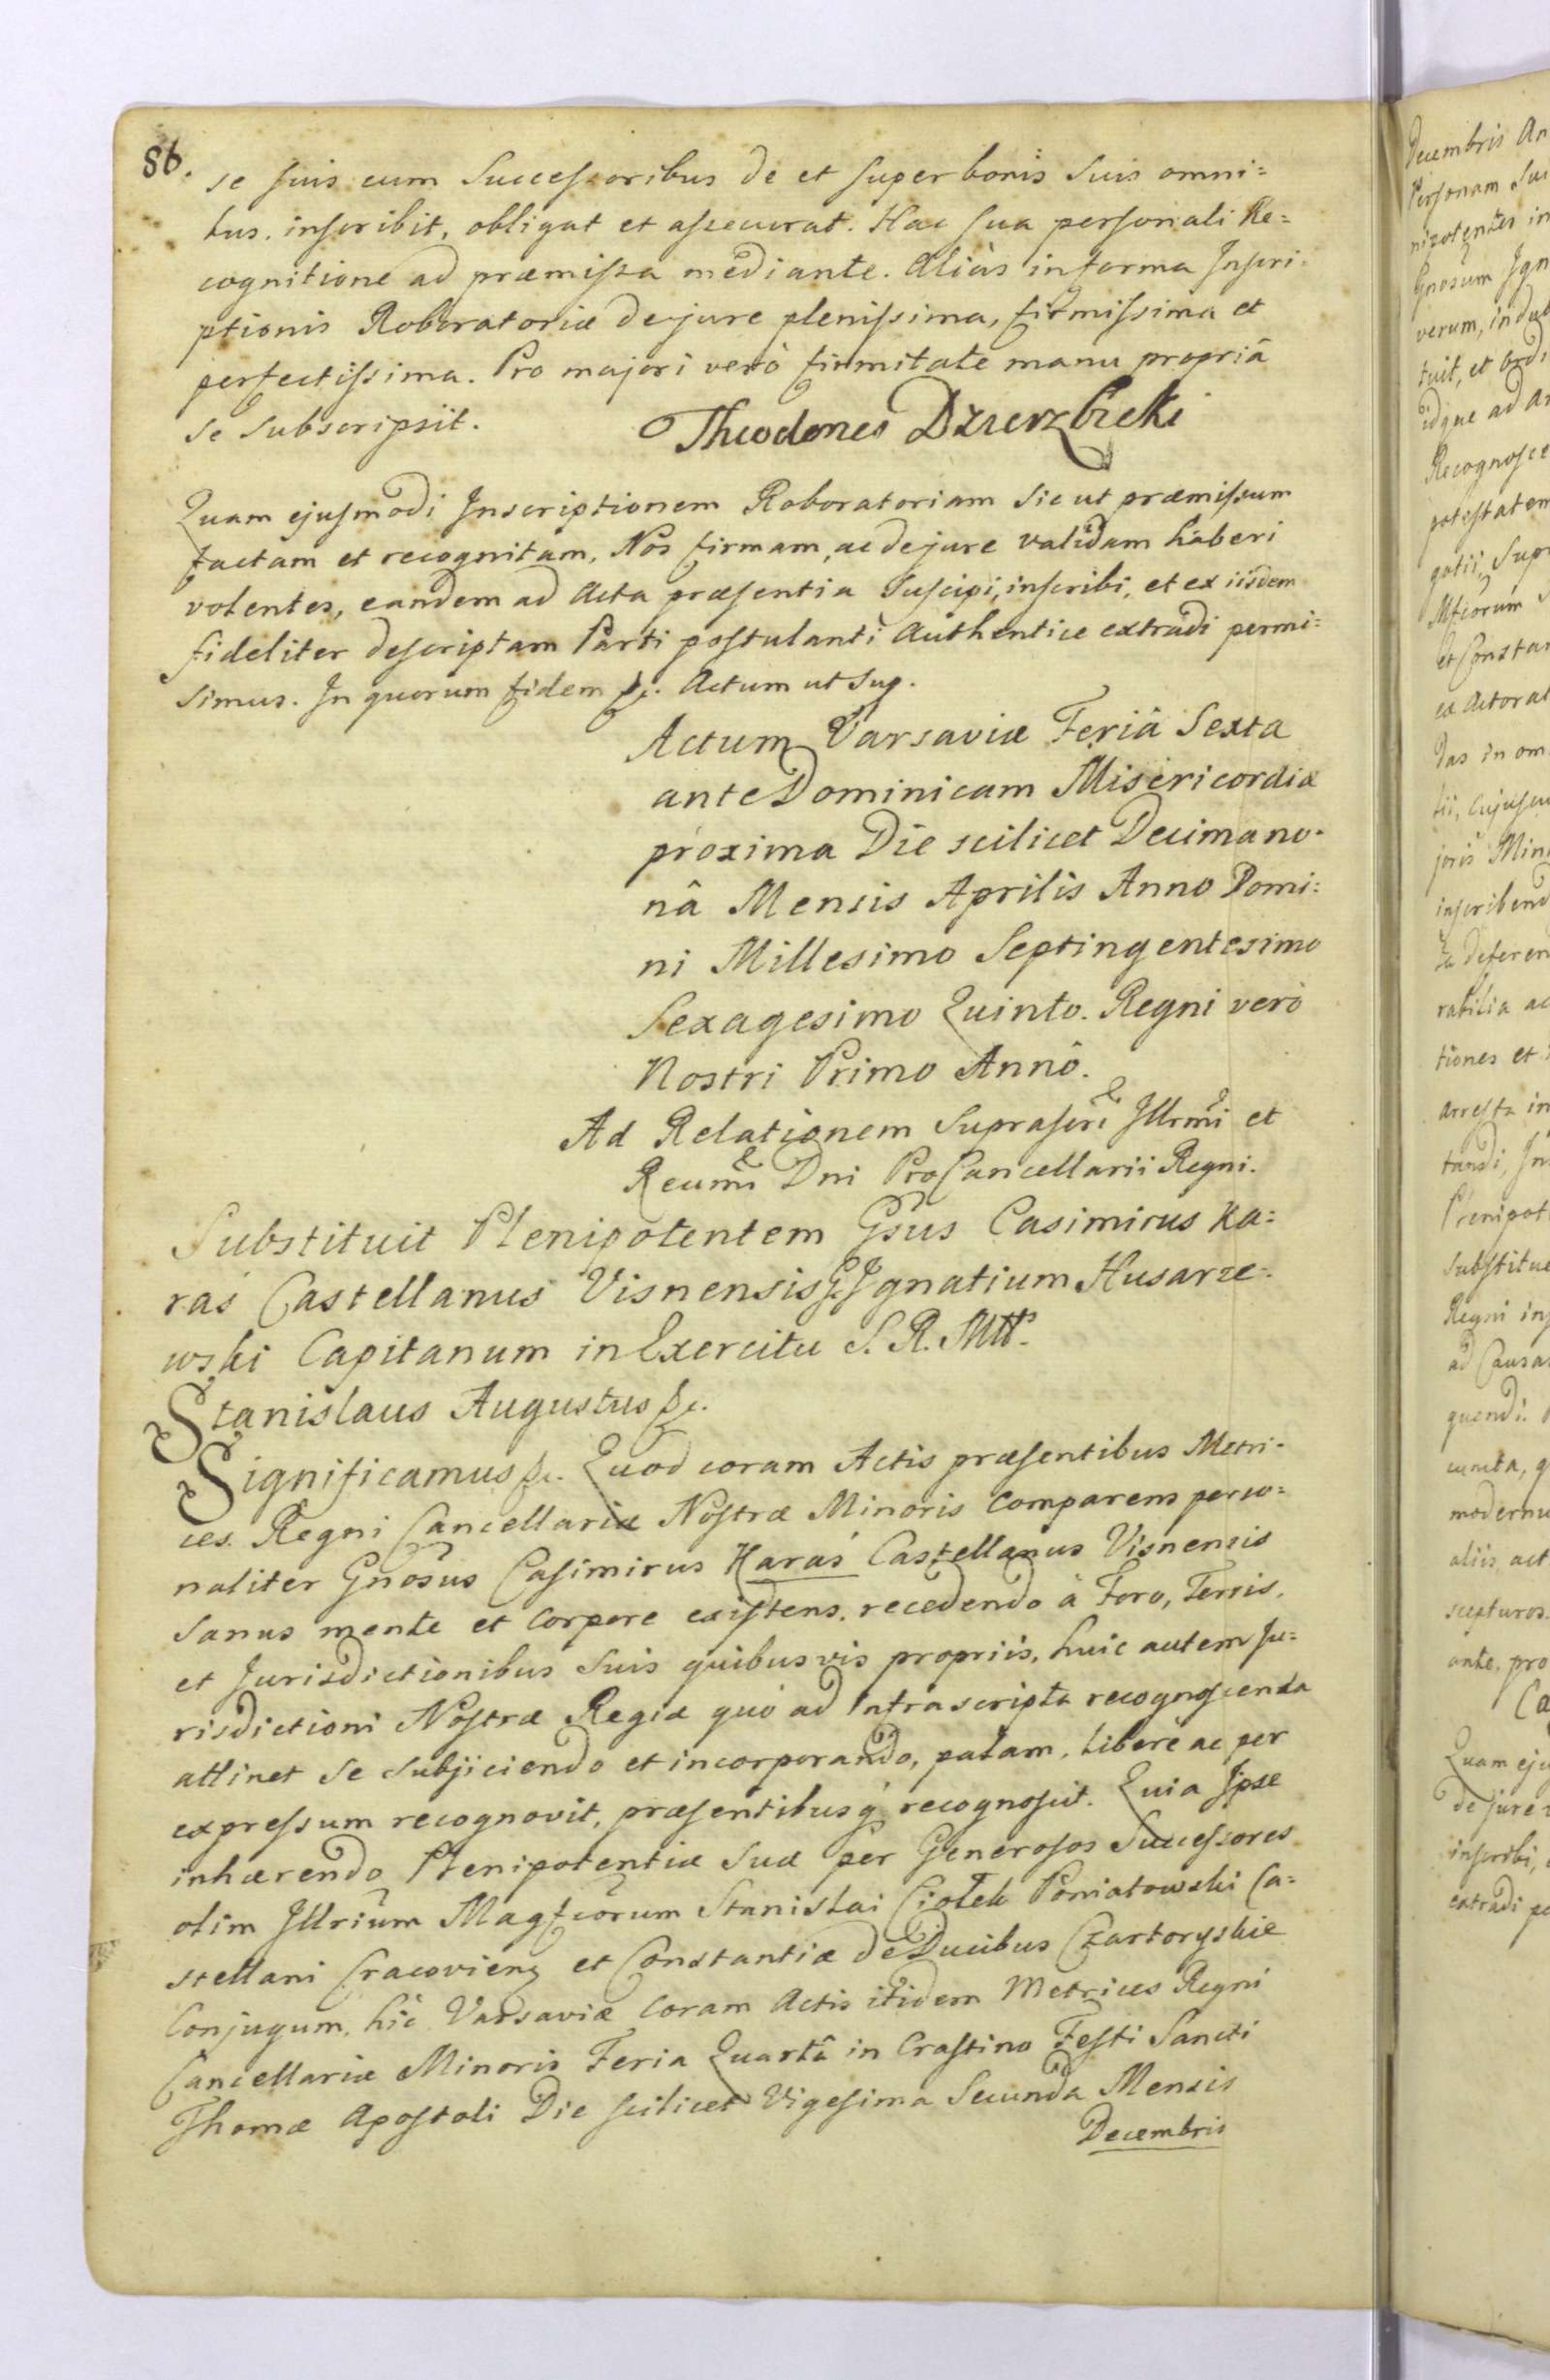 86.
se suis cum Successoribus de et super bonis Suis omni=
bus. inscribit, obligat et assecurat. Hac sua personali Re=
cognitione ad præmissa mediante. Aliàs in forma Inscri=
ptionis Roboratoriæ de jure plenissima, firmissima et
perfectissima. Pro majori verò firmitate manu propriâ
se Subscripsit.
Theodorus Dzierzbicki
Quam ejusmodi Inscriptionem Roboratoriam Sic ut præmissum
factam et recognitam, Nos firmam, ac de jure validam haberi
volentes, eandem ad Acta præsentia Suscipi, inscribi, et ex iisdem
fideliter descriptam Parti postulanti Authentice extradi permi=
simus. In quorum fidem &c. Actum ut Sup.
Actum Varsaviæ Feriâ Sexta
ante Dominicam Misericordiæ
proxima Die scilicet Decima no=
nâ Mensis Aprilis Anno Domi=
ni Millesimo Septingentesimo
Sexagesimo Quinto. Regni verò
Nostri Primo Annô.
Ad Relationem Suprascri Illrmi et
Reumi Dni ProCancellarii Regni.
Substituit Plenipotentem Gsus Casimirus Ka=
raś Castellanus Visnensis G. Ignatium Husarze=
wski Capitanum in Exercitu S. R. Mtt.
Stanislaus Augustus &c.
Significamus &c. Quod coram Actis præsentibus Metri=
ces. Regni Cancellariæ Nostræ Minoris Comparens perso=
naliter Gnosus Casimirus Karaś Castellanus Visnensis
Sanus mente et Corpore existens. recedendo à Foro, Terris.
et Jurisdictionibus Suis quibusvis propriis, huic autem Ju=
risdictioni Nostræ Regiæ quò ad Infrascripta recognoscenda
attinet Se Subjiciendo et incorporando, palam, libere ac per
expressum recognovit, præsentibusq́ recognoscit. Quia Ipse
inhærendo Plenipotentiæ Suæ per Generosos Successores
olim Illrium Magfcorum Stanislai Ciołek Poniatowski Ca=
stellani Cracovien et Constantiæ de Ducibus Czartoryskie
Conjugum. hic Varsaviæ Coram Actis itidem Metrices Regni
Cancellariæ Minoris Feria Quartâ in Crastino Festi Sancti
Thomæ Apostoli Die scilicet Vigesima Secunda Mensis
Decembris
Decembris An
Personam Sui
nipotentes in
Gnosum Ign
verum, indub
tuit, et Ordi
idque ad a
Recognosce
potestatem
gotii, Supr
Mfcorum
et Constan
ex Actorat
das in om
tii, cujuscu
joris Min
inscribend
deferen
rabilia ac
tiones et
arresta in
tandi, In
Plenipot
Substitue
Regni in
ad Causa
quendi.
cuncta, q
modernu
aliis act
scepturos.
ante. pro
Ca
Quam eju
de jure
inscribi,
extradi pe